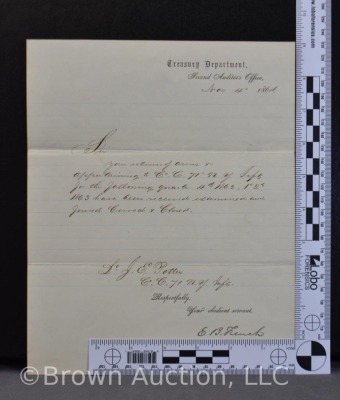 Treasury Department,
Second Auditor's Office,
Nov 4th 1864
Sir
Your returns of
appertaining to C. C. 71st N.Y. Inft
for the following quarters 4th 1862. 1st & 2d
1863 have been received examined and
found Correct & Closed.
Lt. J. E. Potter
C. C. 71 N.Y. Inft.
Respectfully,
Your obedient servant,
E. B. French
Lobo
FORENSICS
© Brown Auction, LLC